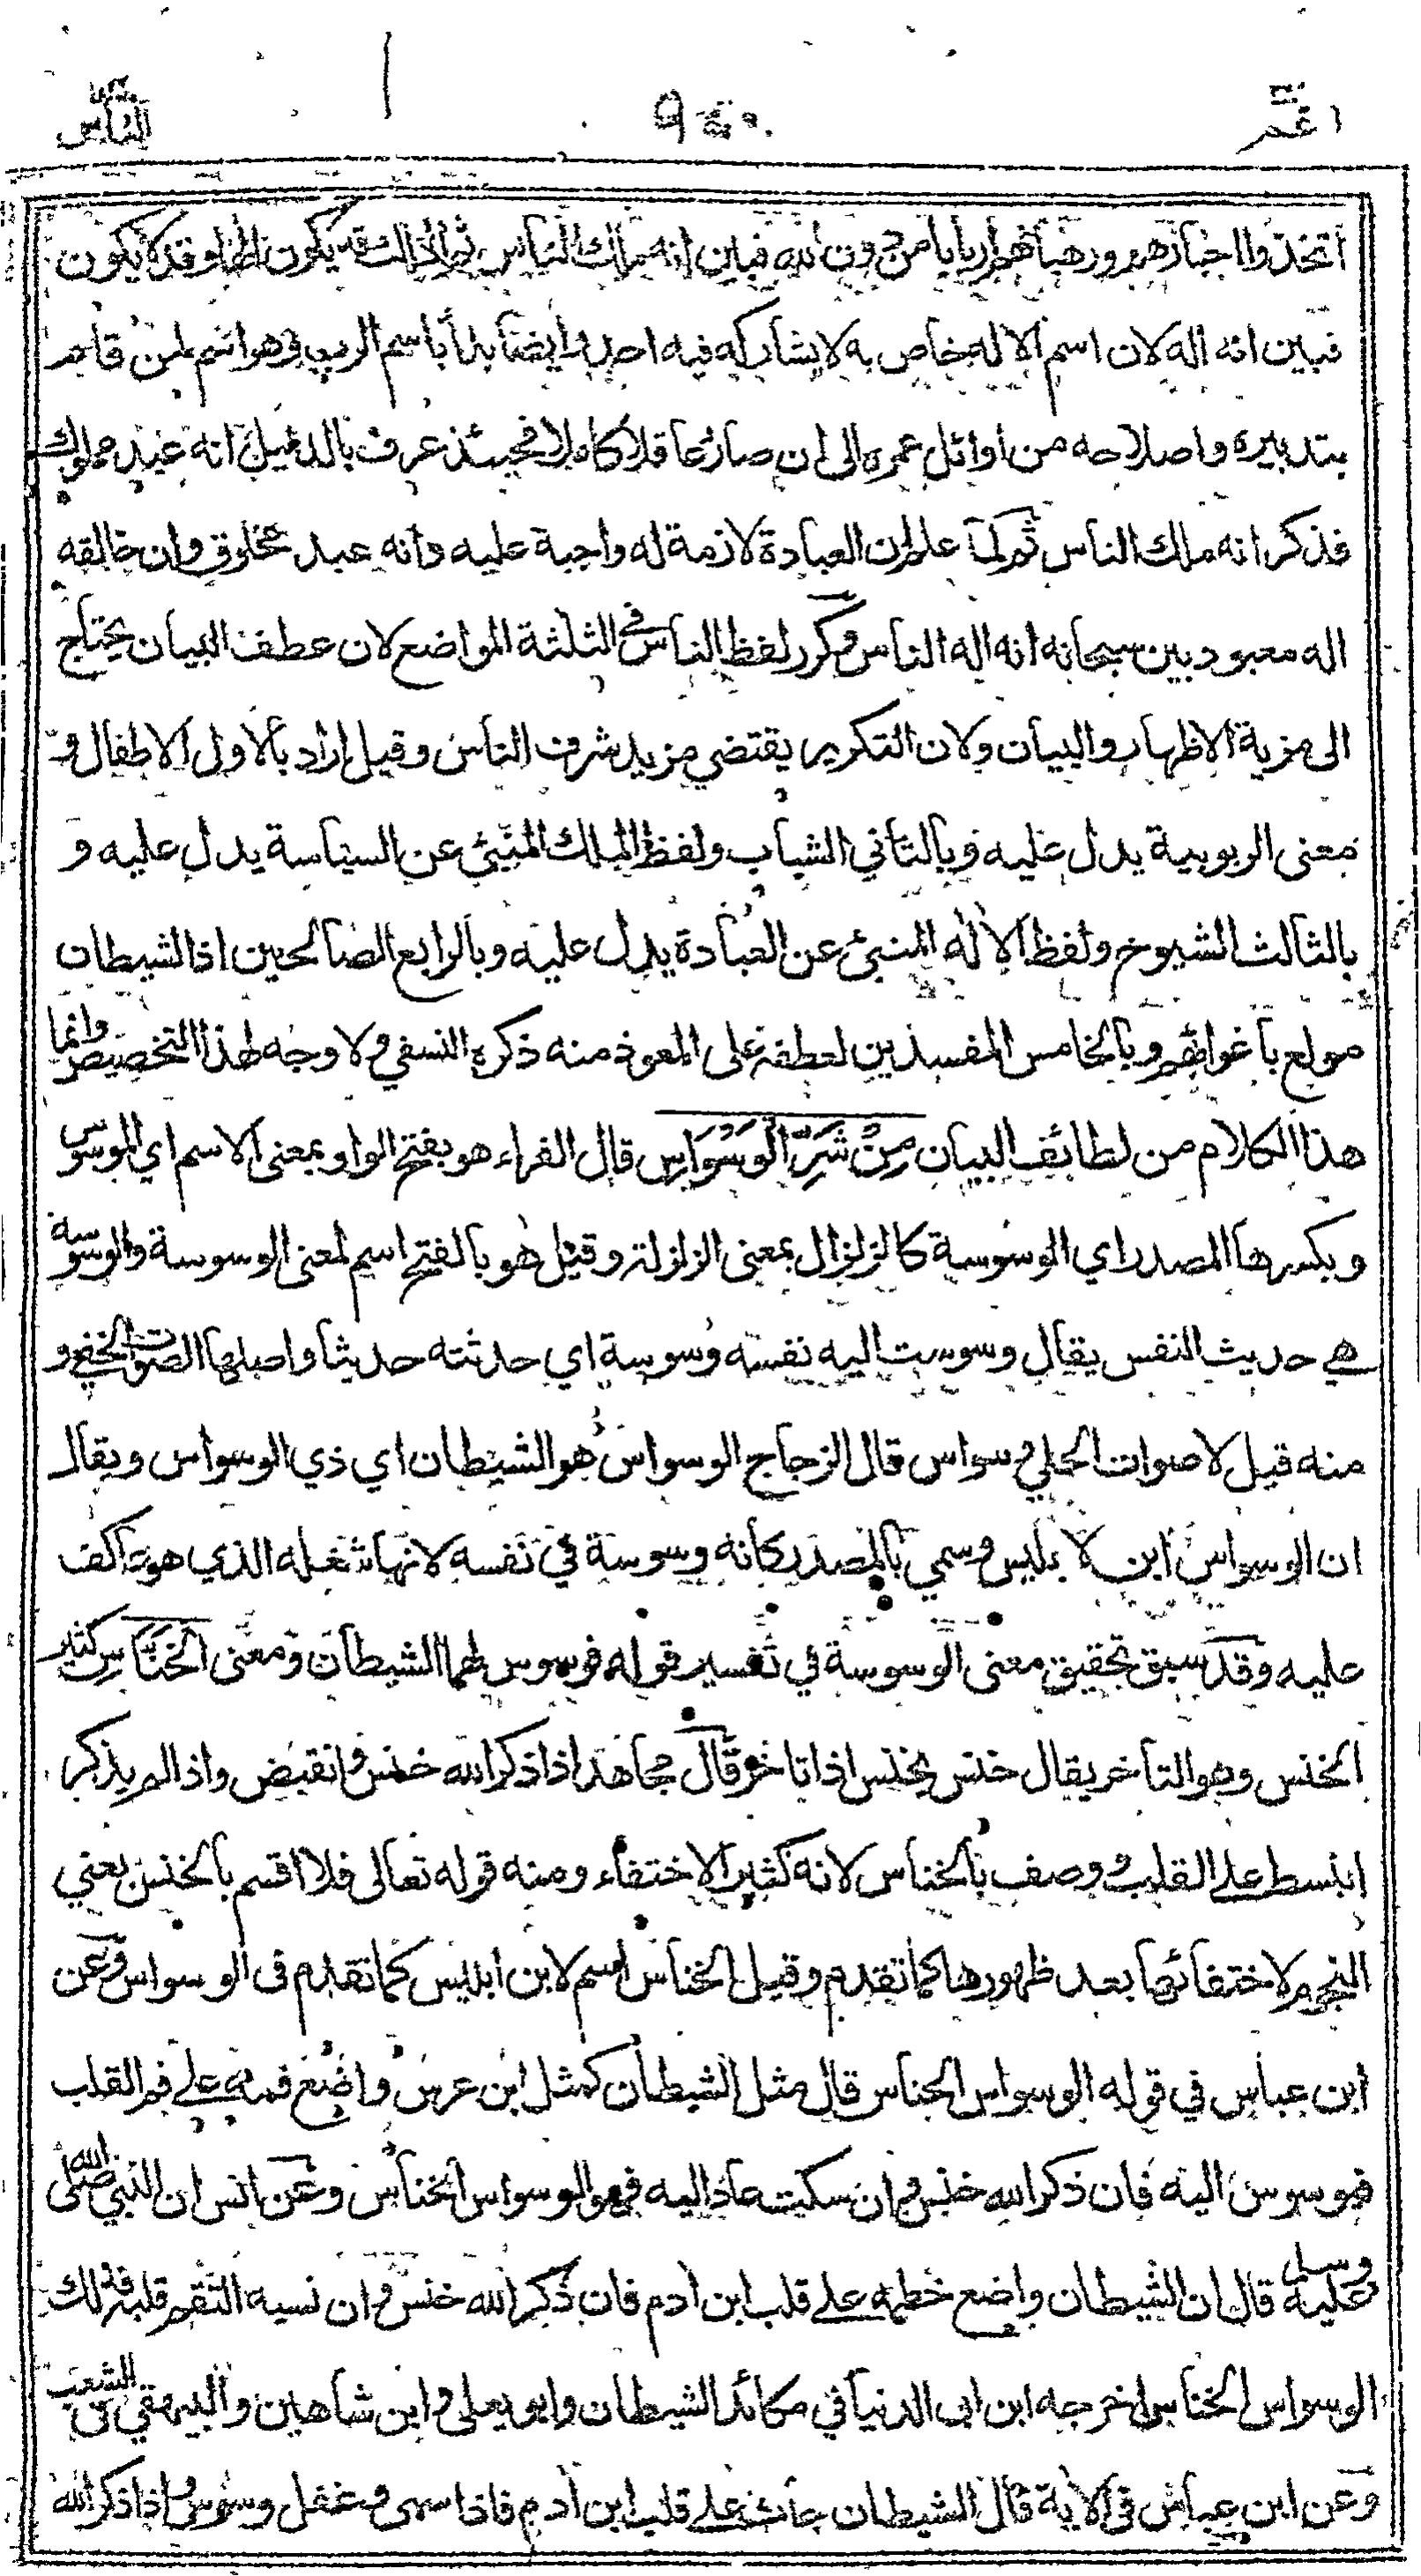 عم
الناس
اتخذوا احبارهم ورهبانهم اربابا من دون الله فبين انه ملك الناس ثم الملك قد يكون الها وقد لا يكون
فبين انه اله لان اسم الاله خاص به لا يشاركه فيه احد وايضا بدأ باسم الرب وهو اسم لمن قام
بتدبيره واصلاحه من أوائل عمره الى ان صار عاقلا كاملا فحينئذ عرف بالدليل انه عبد مملوك
فذكر انه ملك الناس ثم لما علم ان العبادة لازمة له واجبة عليه وانه عبد مخلوق وان خالقه
اله معبود بين سبحانه انه اله الناس وكرر لفظ الناس في الثلثة المواضع لان عطف البيان يحتاج
الى مزية الاظهار والبيان ولان التكرير يقتضي مزيد شرف الناس وقيل اراد بالاول الاطفال و
معنى الربوبية يدل عليه وبالثاني الشباب ولفظ الملك المنبئ عن السياسة يدل عليه و
بالثالث الشيوخ ولفظ الاله المنبئ عن العبادة يدل عليه وبالرابع الصالحين اذ الشيطان
مولع باغوائهم وبالخامس المفسدين لعطفه على المعوذ منه ذكره النسفي ولا وجه لهذا التخصيص وانما
هذا الكلام من لطائف البيان مِنْ شَرِّ الْوَسْوَاسِ قال الفراء هو بفتح الواو بمعنى الاسم اي الموسوس
وبكسرها المصدر اي الوسوسة كالزلزال بمعنى الزلزلة وقيل هو بالفتح اسم لمعنى الوسوسة والوسوسة
هي حديث النفس يقال وسوست اليه نفسه وسوسة اي حدثته حديثا واصلها الصوت الخفي و
منه قيل لاصوات الحلي وسواس قال الزجاج الوسواس هو الشيطان اي ذي الوسواس ويقال
ان الوسواس ابن لابليس وسمي بالمصدر كانه وسوسة في نفسه لانها شغله الذي هو عاكف
عليه وقد سبق تحقيق معنى الوسوسة في تفسير قوله فوسوس لهما الشيطان ومعنى الْخَنَّاسِ كثير
الخنس وهو التأخر يقال خنس يخنس اذا تاخر وقال مجاهد اذا ذكر الله خنس وانقبض واذا لم يذكر
انبسط على القلب ووصف بالخناس لانه كثير الاختفاء ومنه قوله تعالى فلا اقسم بالخنس يعني
النجوم لاختفائها بعد ظهورها كما تقدم وقيل الخناس اسم لابن ابليس كما تقدم في الوسواس وعن
ابن عباس في قوله الوسواس الخناس قال مثل الشيطان كمثل ابن عرس واضع فمه على فم القلب
فوسوس اليه فان ذكر الله خنس وان سكت عاد اليه فهو الوسواس الخناس وعن انس ان النبي صلى الله
عليه وسلم قال ان الشيطان واضع خطمه على قلب ابن ادم فان ذكر الله خنس وان نسيه التقم قلبه فذلك
الوسواس الخناس اخرجه ابن ابي الدنيا في مكائد الشيطان وابو يعلى وابن شاهين والبيهقي في الشعب
وعن ابن عباس في الاية قال الشيطان جاث على قلب ابن ادم فاذا سهى وغفل وسوس واذا ذكر الله